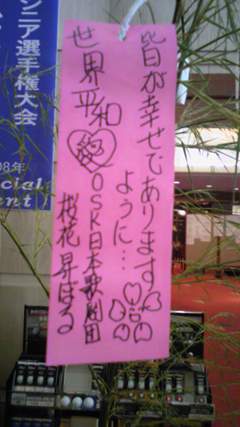 皆が幸せであります
ように…
世界平和
OSK日本歌劇団
桜花 昇ぼる
ニア選手権大会
08年
cial
ent